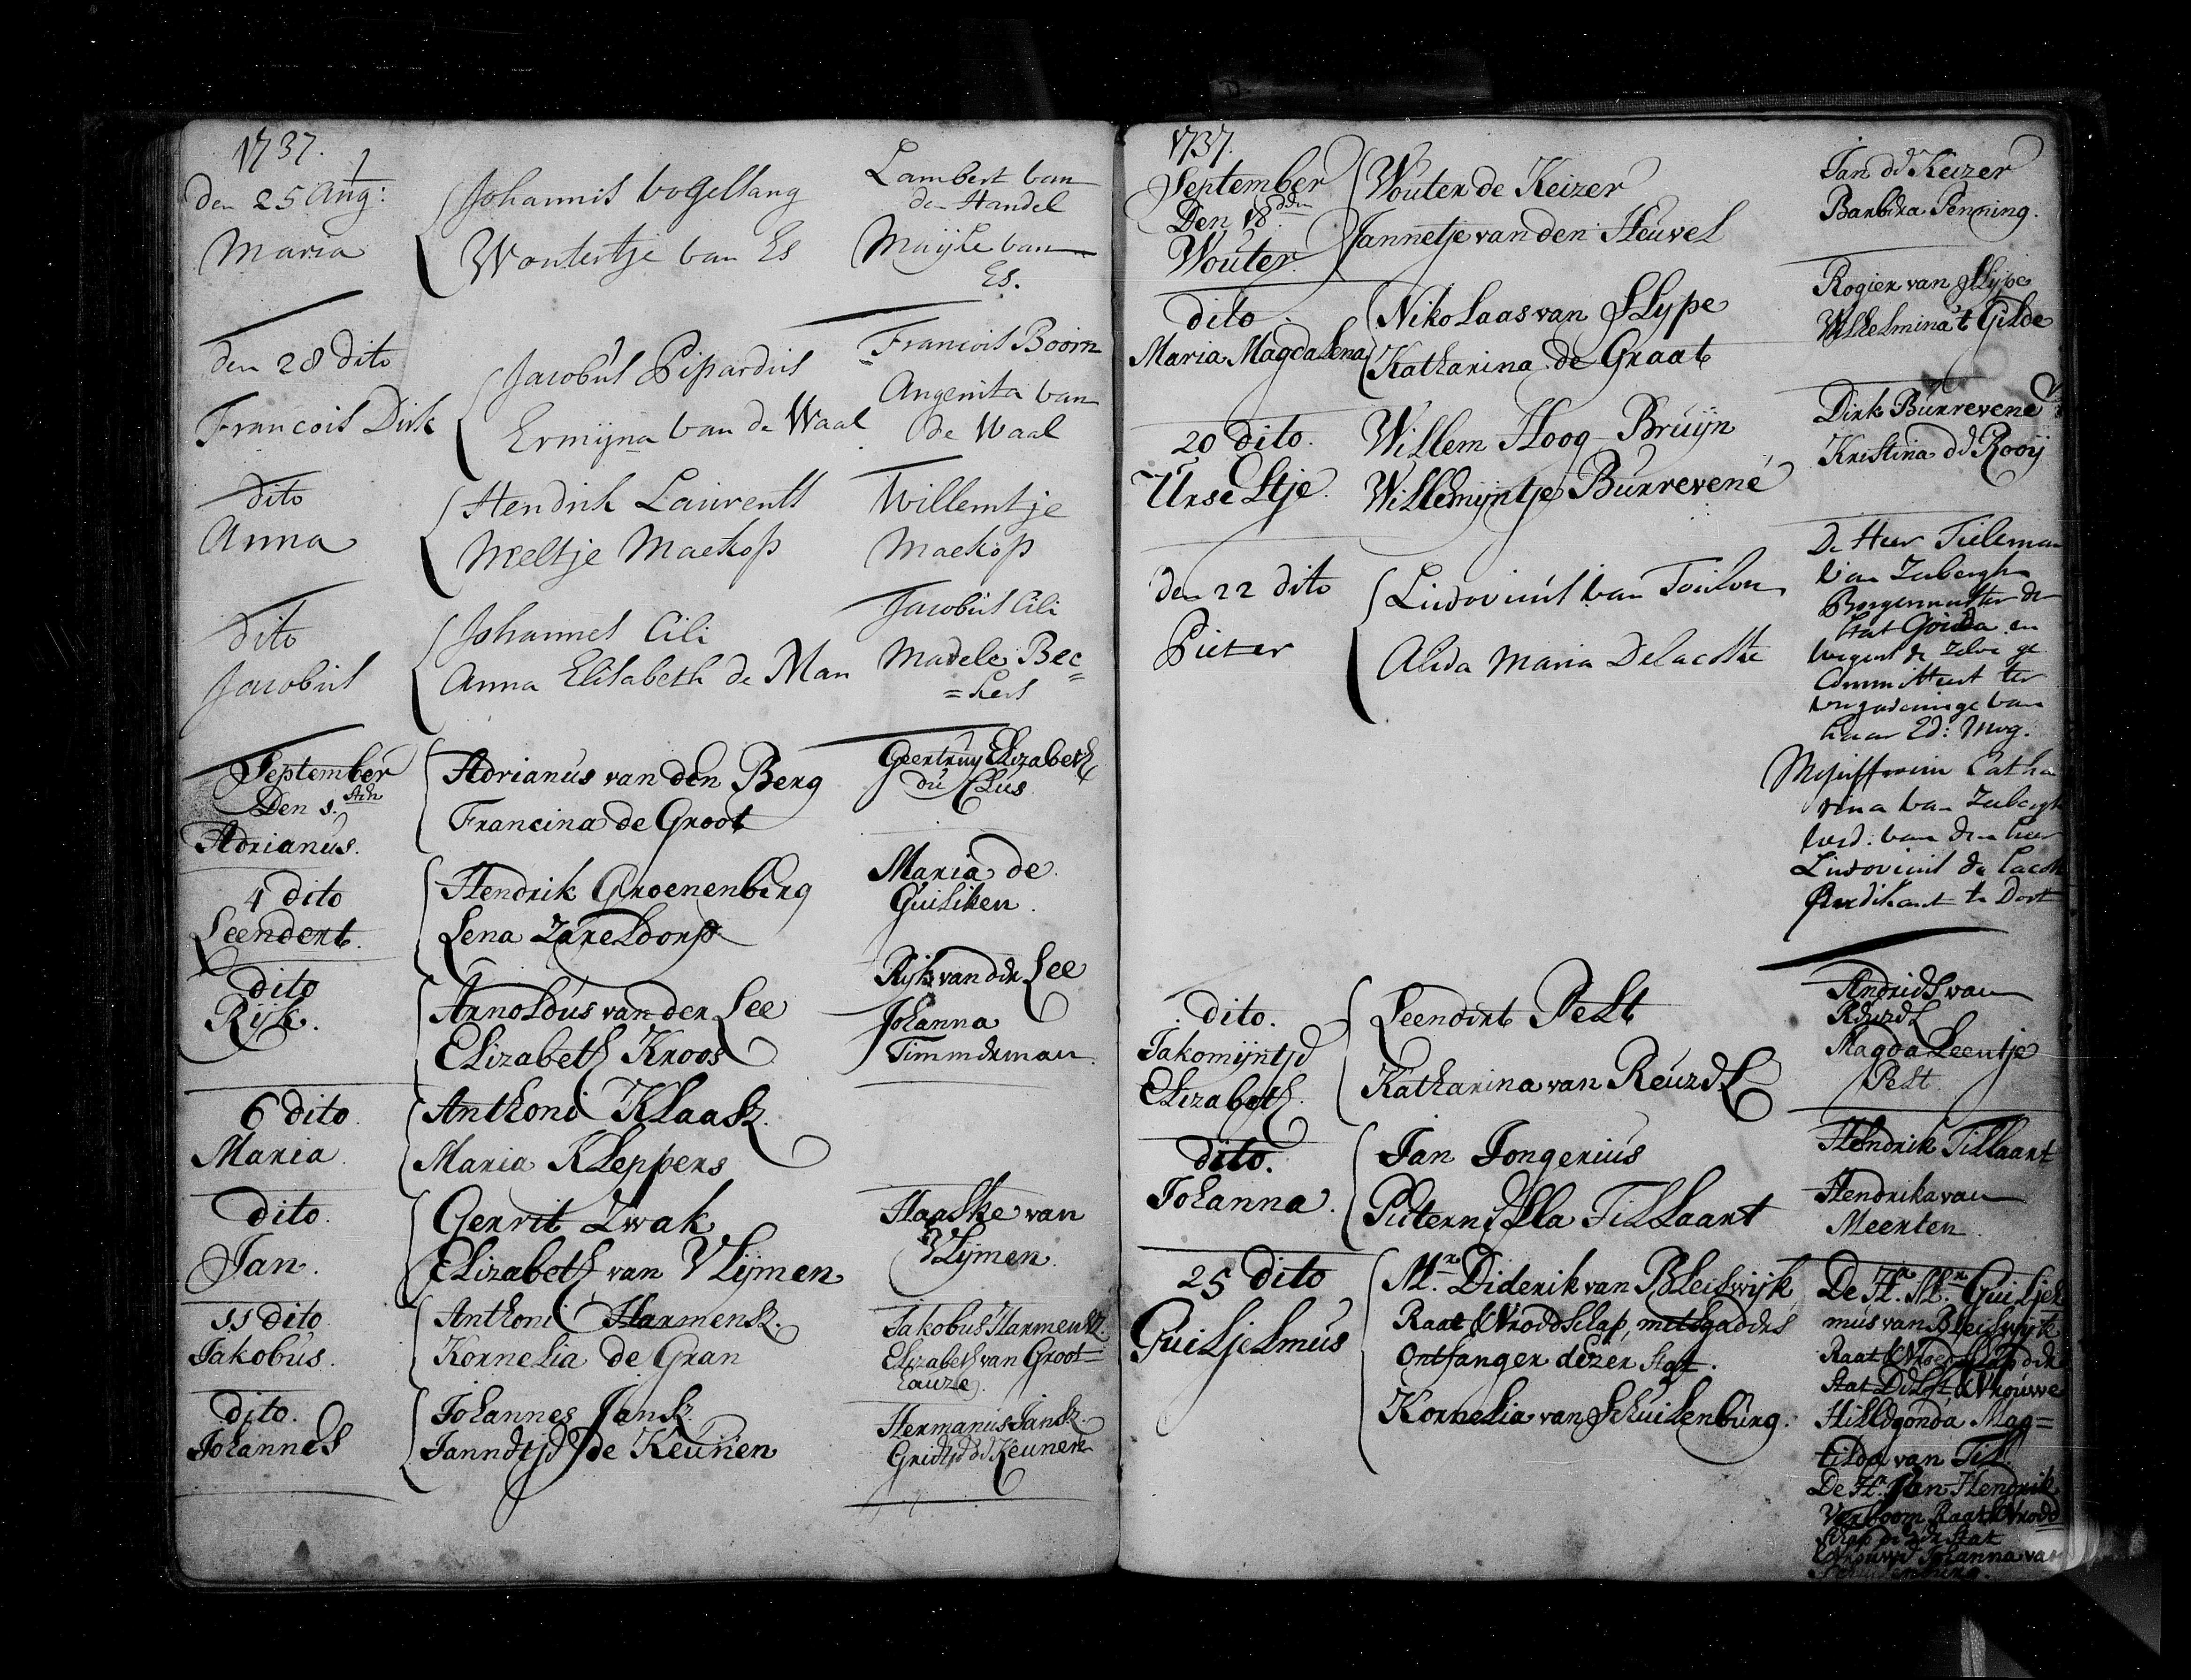 1737.
den 25 Aug:
Maria
Johannis Vogelsang
Woutertje van Es
Lambert van
den Handel
Maijke van
Es.
den 28 dito
Francois Dirk
Jacobus Pipardus
Ermijna van de Waal
Francois Boom
Angenita van
de Waal
dito
Anna
Hendrik Laurents
Neeltje Maekop
Willemtje
Maekop
dito
Jacobus
Johannes Cili
Anna Elisabeth de Man
Jacobus Cili
Madele Bec=
=kers
September
Den 1.sten
Adrianus.
Adrianus van den Berg
Francina de Groot
Geertruy Elizabeth
du Clus
4 dito
Leendert.
Hendrik Groenenberg
Lena
Maria de
Guiliken.
dito
Rijk.
Arnoldus van der Lee
Elizabeth Kroos
Rijk van der Lee
Johanna
Timmerman.
6 dito.
Maria.
Anthoni Klaasz.
Maria Kleppers
dito.
Jan.
Gerrit Zwak
Elizabeth van Vlijmen
Haaske van
Vlijmen.
11 dito
Jakobus.
Anthoni Harmensz.
Kornelia de Gran
Jakobus Harmensz.
Elizabeth van Groot=
Lauze.
dito.
Johannes
Johannes Jansz.
Janneije de Keunen
Hermanus Jansz.
Grietje de Keunen
1737.
September
Den 18den
Wouter.
Wouter de Keizer
Jannetje van den Heuvel
Jan de Keizer
Barbera Penning.
dito
Maria Magdalena
Nikolaas van Slype
Katharina de Graat
Rogier van Slype
Willelmina 't Gilde
20 dito.
Urseltje.
Willem Hoog-Bruijn
Willemijntje Burrevené
Dirk Burrevene
Kristina de Rooij
den 22 dito
Pieter
Ludovicus van Toulon
Alida Maria Delacoste
De Heer Tieleman
van
Borgermeester der
stat Gouda en
wegens de zelve ge
Committeert ter
vergaderinge van
haar Ed: Mog.
Mejuffrouw Catha
rina van
wed: van den heer
Ludovicus de Lacoste
Predikant te Dort
dito.
Jakomijntje
Elizabeth.
Leendert Pelt
Katharina van Reuzel
Andries van
Reuzel
Magdaleentje
Pelt.
dito.
Johanna.
Jan Jongerius
Pieternella Tillaart
Hendrik Tillaart
Hendrika van
Meerten.
25 dito
Guiljelmus
Mr. Diderik van Bleiswijk
Raat & Vroedschap, mitsgaders
Ontfanger dezer stat.
Kornelia van Schuilenburg.
De Hr. Mr. Guiljel
mus van Bleiswijk
Raat & Vroedschap der
stat Delft, & Vrouwe
Hillegonda Mag=
tilda van Til.
De Hr. Jan Hendrik
Verboom Raat & Vroed
schap dezer stat
& Vrouwe Johanna van
Schuilenburg.